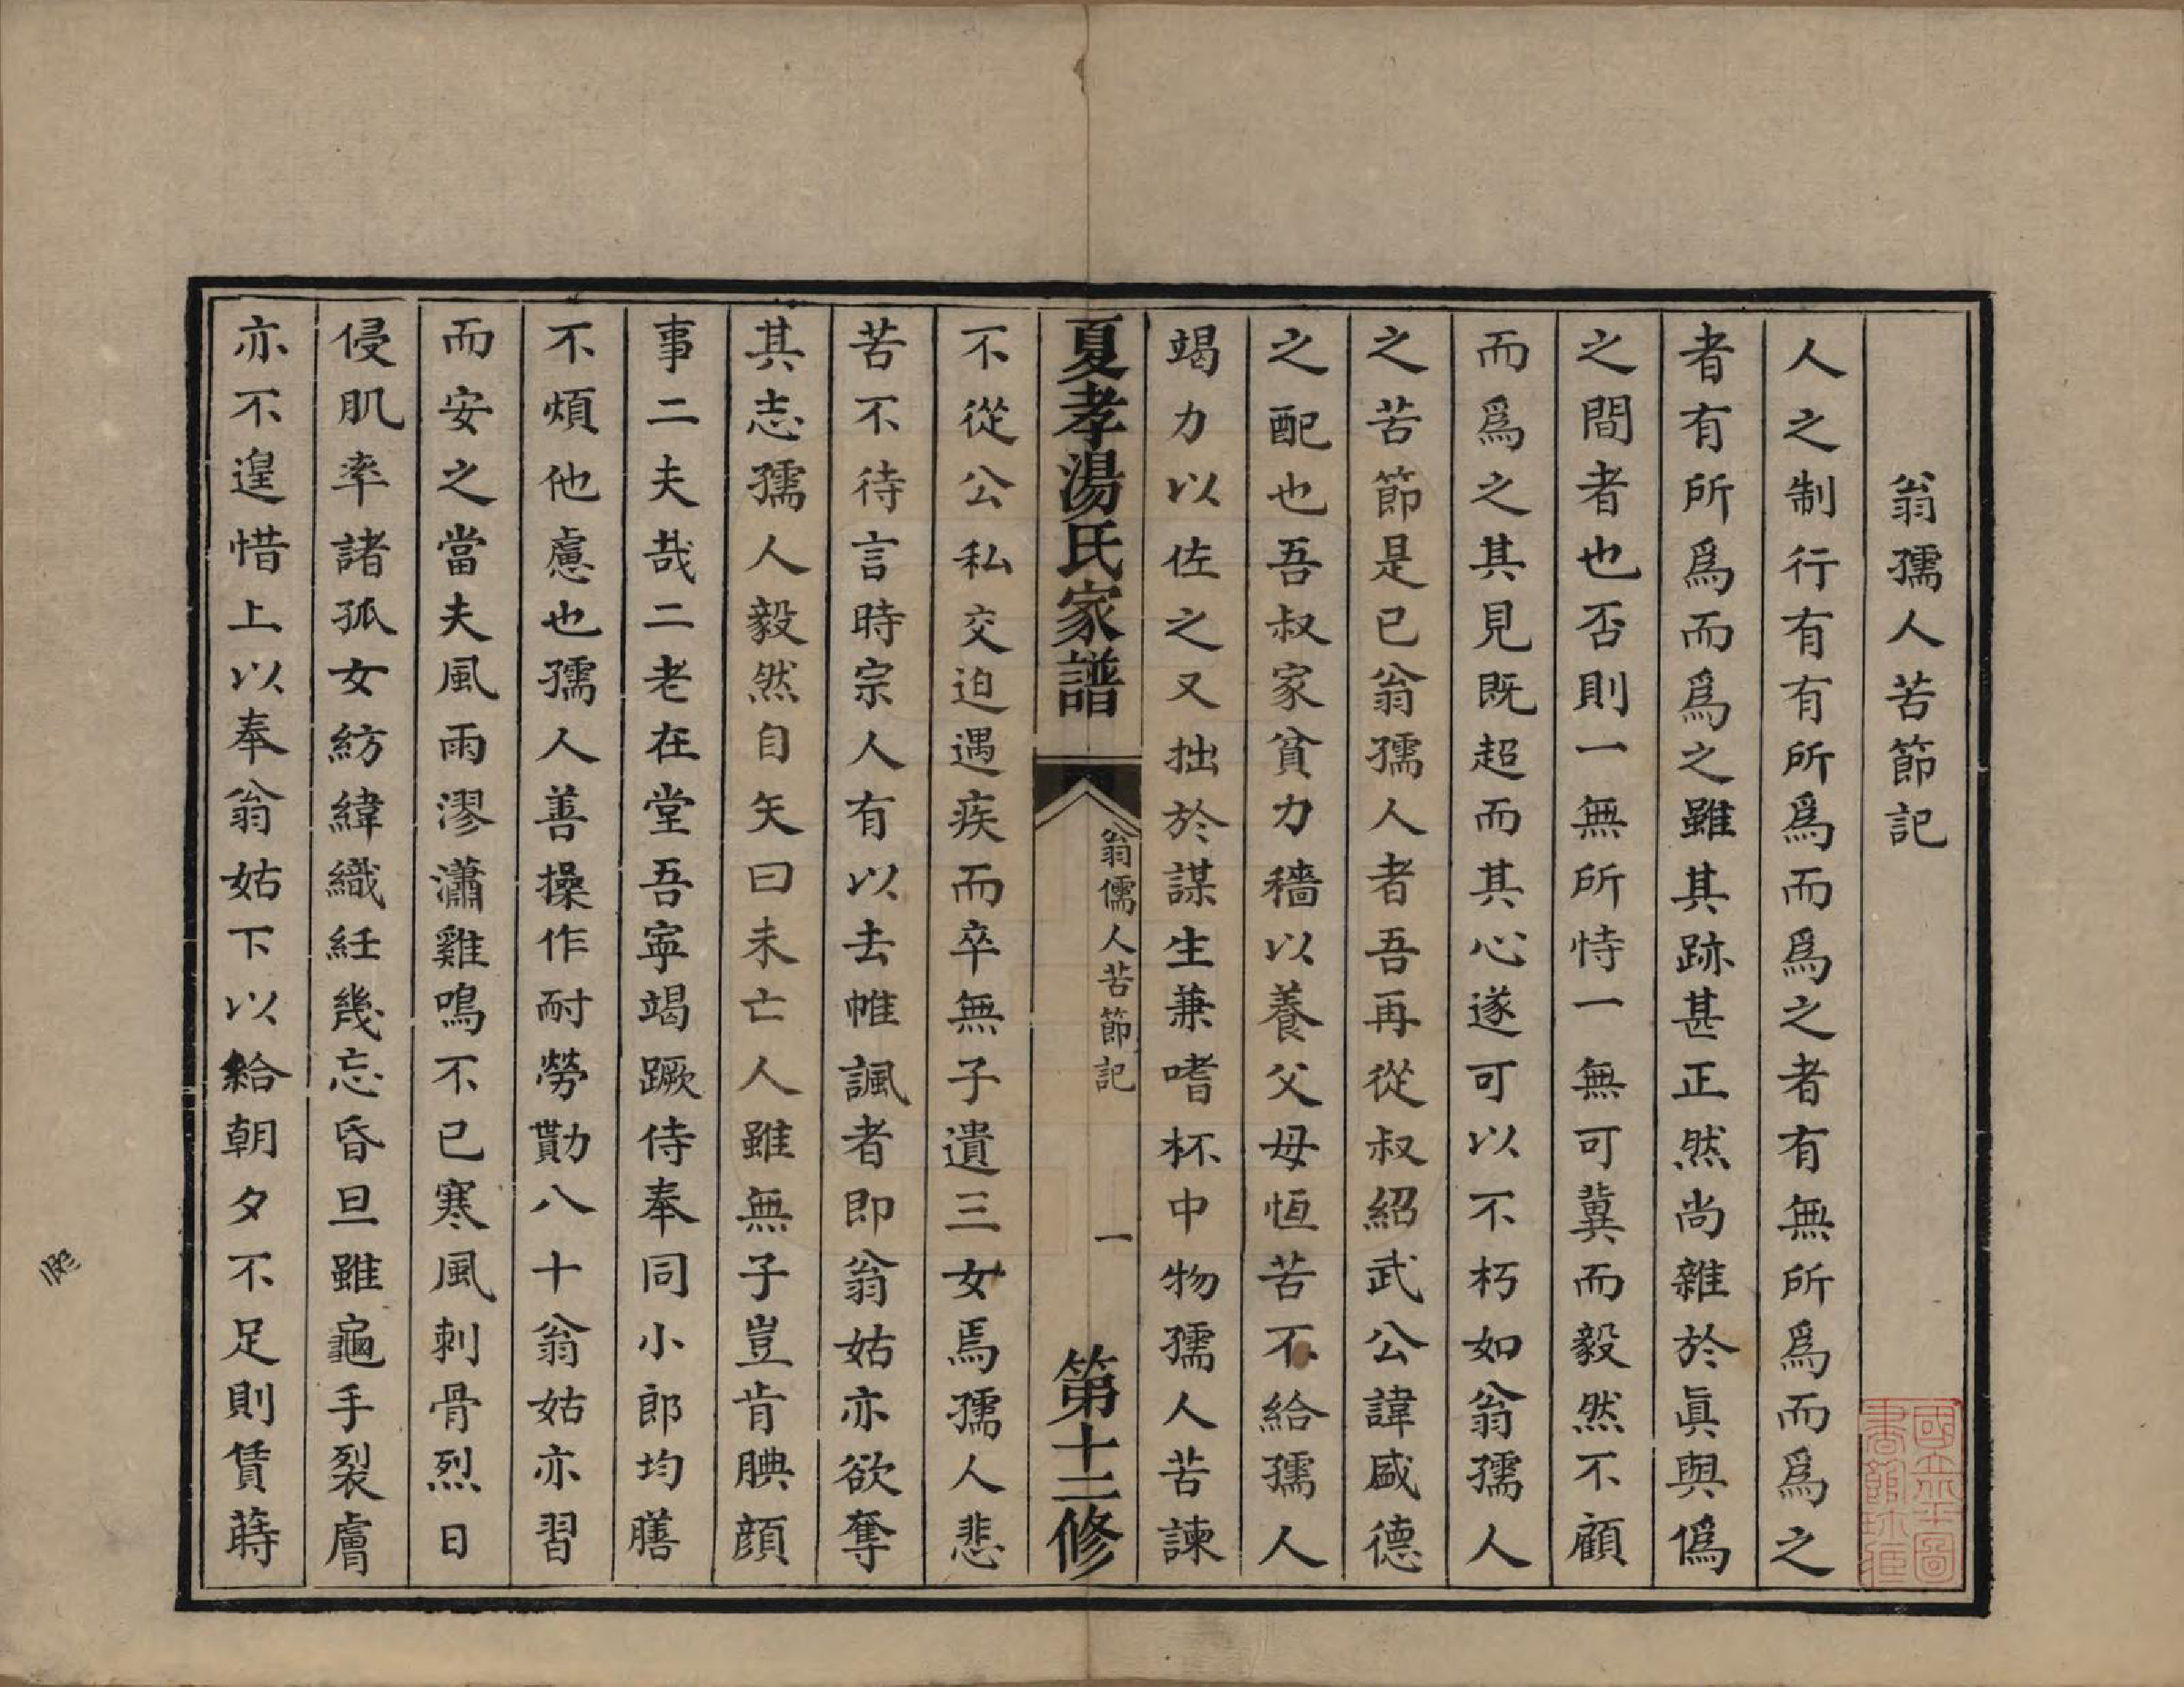 翁孺人苦節記
人之制行有有所爲而爲之者有無所爲而爲之
者有所爲而爲之雖其跡甚正然尚雜於眞與僞
之間者也否則一無所恃一無可冀而毅然不顧
而爲之其見既超而其心遂可以不朽如翁孺人
之苦節是已翁孺人者吾再從叔紹武公諱盛德
之配也吾叔家貧力穡以養父母恆苦不給孺人
竭力以佐之又拙於謀生兼嗜杯中物孺人苦諫
夏孝湯氏家譜
翁儒人苦節記
一
第十二修
不從公私交迫遇疾而卒無子遺三女焉孺人悲
苦不待言時宗人有以去帷諷者即翁姑亦欲奪
其志孺人毅然自矢曰未亡人雖無子豈肯腆顔
事二夫哉二老在堂吾寧竭蹶侍奉同小郎均膳
不煩他慮也孺人善操作耐勞勩八十翁姑亦習
而安之當夫風雨漻瀟雞鳴不已寒風刺骨烈日
侵肌率諸孤女紡緯織紝幾忘昏旦雖龜手裂膚
亦不遑惜上以奉翁姑下以給朝夕不足則賃蒔
國立北平圖
書館珍藏